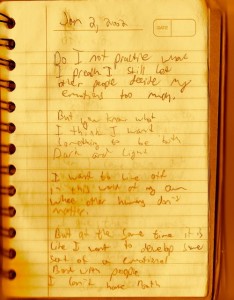 Jan 2, 2002
Do I not practice what
I preach I still let
other people decide my
emotions too much.
But you know what
I think I want
something to be both
Dark and Light
I want to live off
in this world of my own
where other humans don't
matter.
But at the same time it is
like I want to develop some
sort of a emotional
Bond with people
I can't have Both